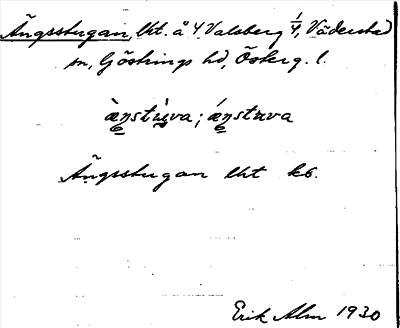 Ängsstugan, lht. å 4 Valsberg 1/4, Väderstad
sn, Göstrings hd, Österg. l.
ä̀ŋstù̀va; ä́ŋstuva
Ängsstugan lht kb.
Erik Alm 1930